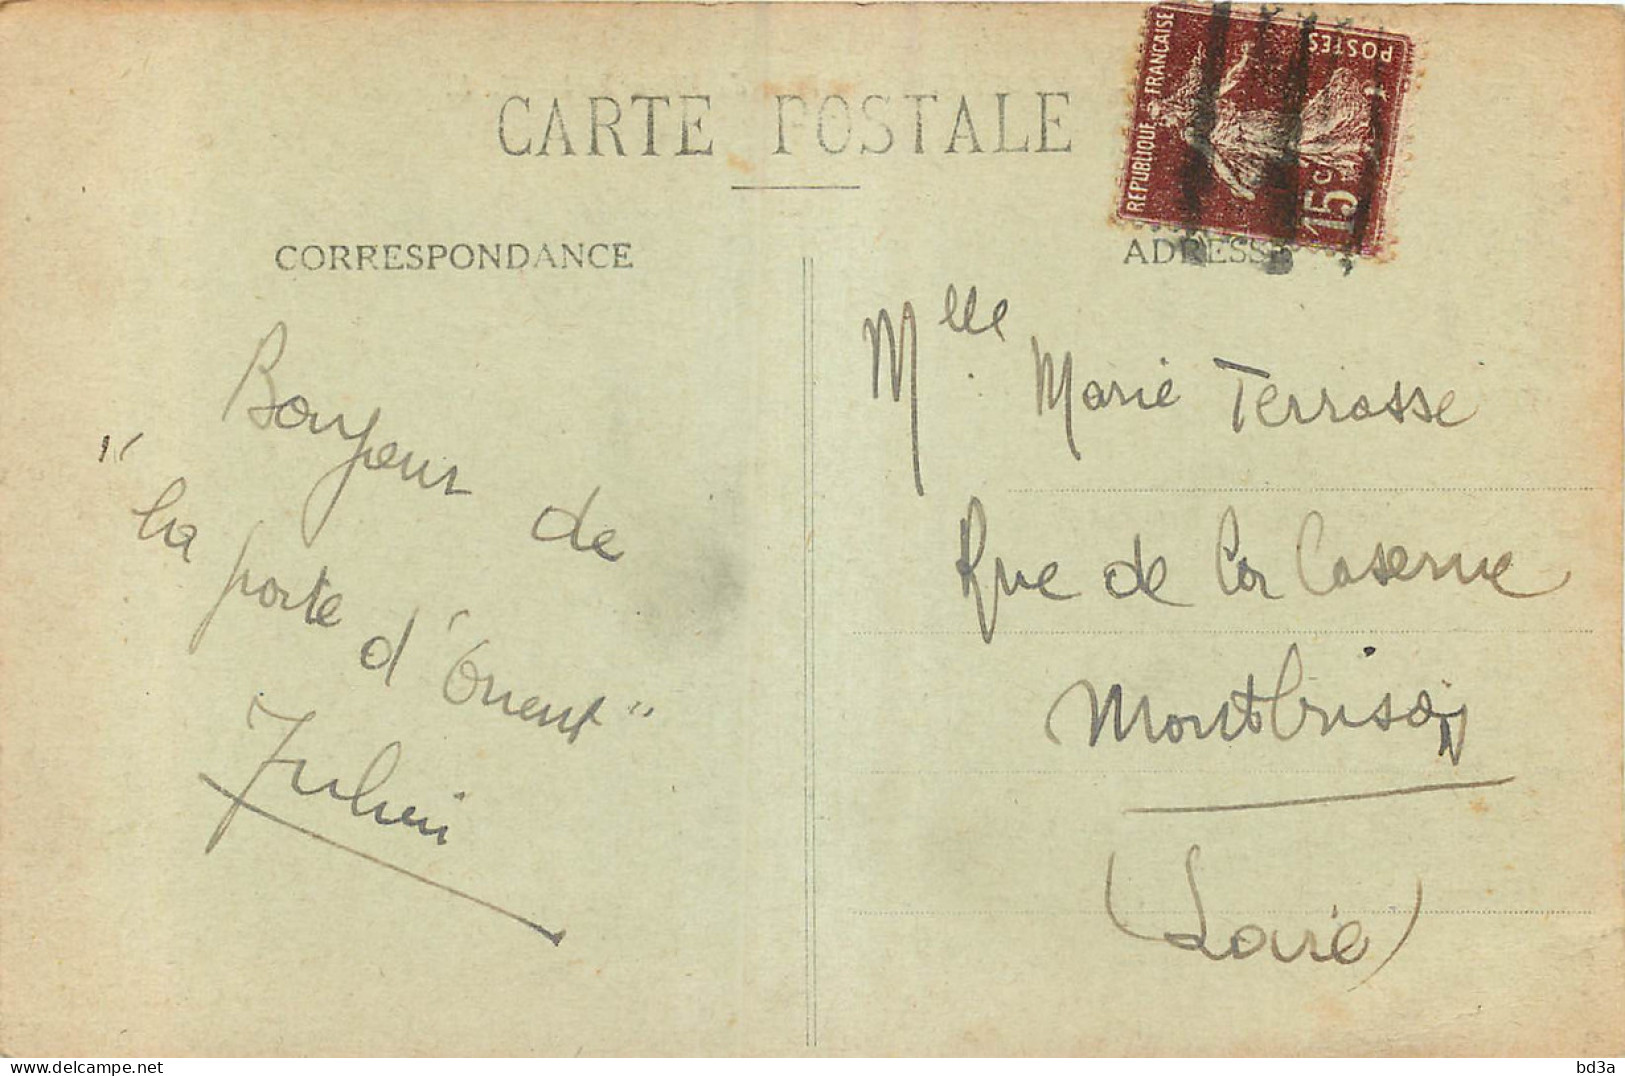 CARTE POSTALE
REPUBLIQUE FRANÇAISE
POSTES
15c
CORRESPONDANCE
ADRESSE
Bonjour de
"la porte d'Orient"
Julien
Mlle Marie Terrasse
Rue de la Caserne
Montbrison
(Loire)
bd3a